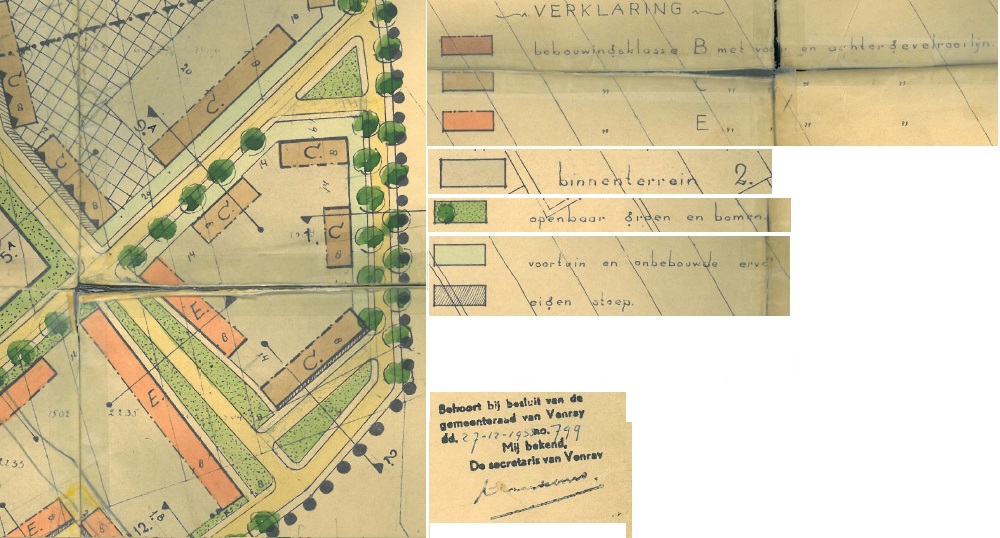 VERKLARING
bebouwingsklasse B met voor en achtergevelrooilijn.
" C " " "
" E " " "
binnenterrein 2.
openbaar groen en bomen.
voortuin en onbebouwde erve
eigen stoep.
Behoort bij besluit van de
gemeenteraad van Venray
dd. 27-12-195 no. 799
Mij bekend,
De secretaris van Venray
10
20
C. 8
8
C.
9.A
C.
19
C. 8
14
29
C.
8
C.
14
1.
C
8
5.A
14
E.
8
C.
14
E.
1502
2235
8
8
2.
2235
E. 8
12.
8